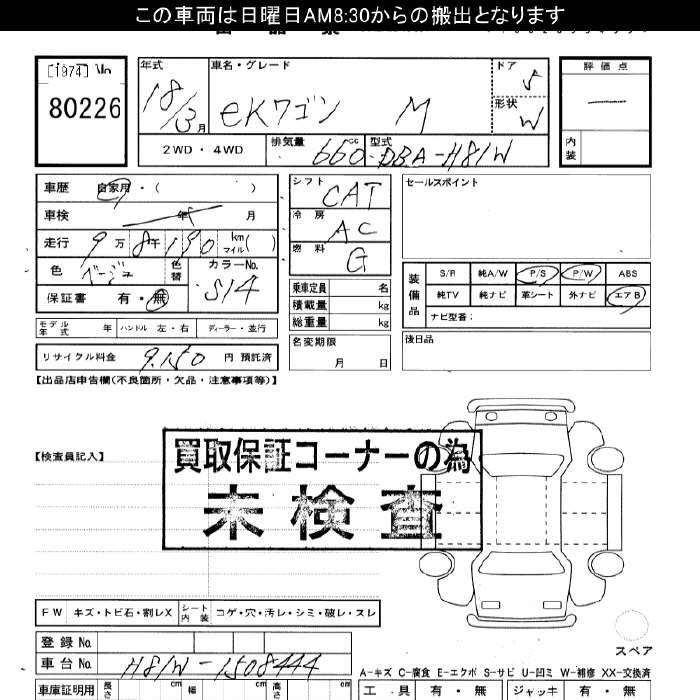 この車両は日曜日AM8:30からの搬出となります
[1974] No
80226
年式 車名・グレード ドア 評価点
18/3月 eKワゴン M 5
形状 W
2WD・4WD 排気量 660cc 型式 DBA-H81W 内装
車歴 自家用・( )
車検 年 月
走行 9万8千190 km マイル( )
色 ベージュ 色替 カラーNo. S14
保証書 有・無
シフト CAT
冷房 AC
燃料 G
乗車定員 名
積載量 kg
総重量 kg
名変期限
月 日
セールスポイント
装備品 S/R 純A/W P/S P/W ABS
純TV 純ナビ 革シート 外ナビ エアB
ナビ型番:
後日品
モデル年式 年 ハンドル 左・右 ディーラー・並行
リサイクル料金 9,150 円 預託済
【出品店申告欄(不良箇所・欠品・注意事項等)】
【検査員記入】
買取保証コーナーの為
未検査
FW キズ・トビ石・割レX シート内装 コゲ・穴・汚レ・シミ・破レ・スレ
スペア
登録No
車台No H81W-1508444
A-キズ C-腐食 E-エクボ S-サビ U-凹ミ W-補修 XX-交換済
車庫証明用 長さ cm 幅 cm 高さ cm
工具 有・無 ジャッキ 有・無